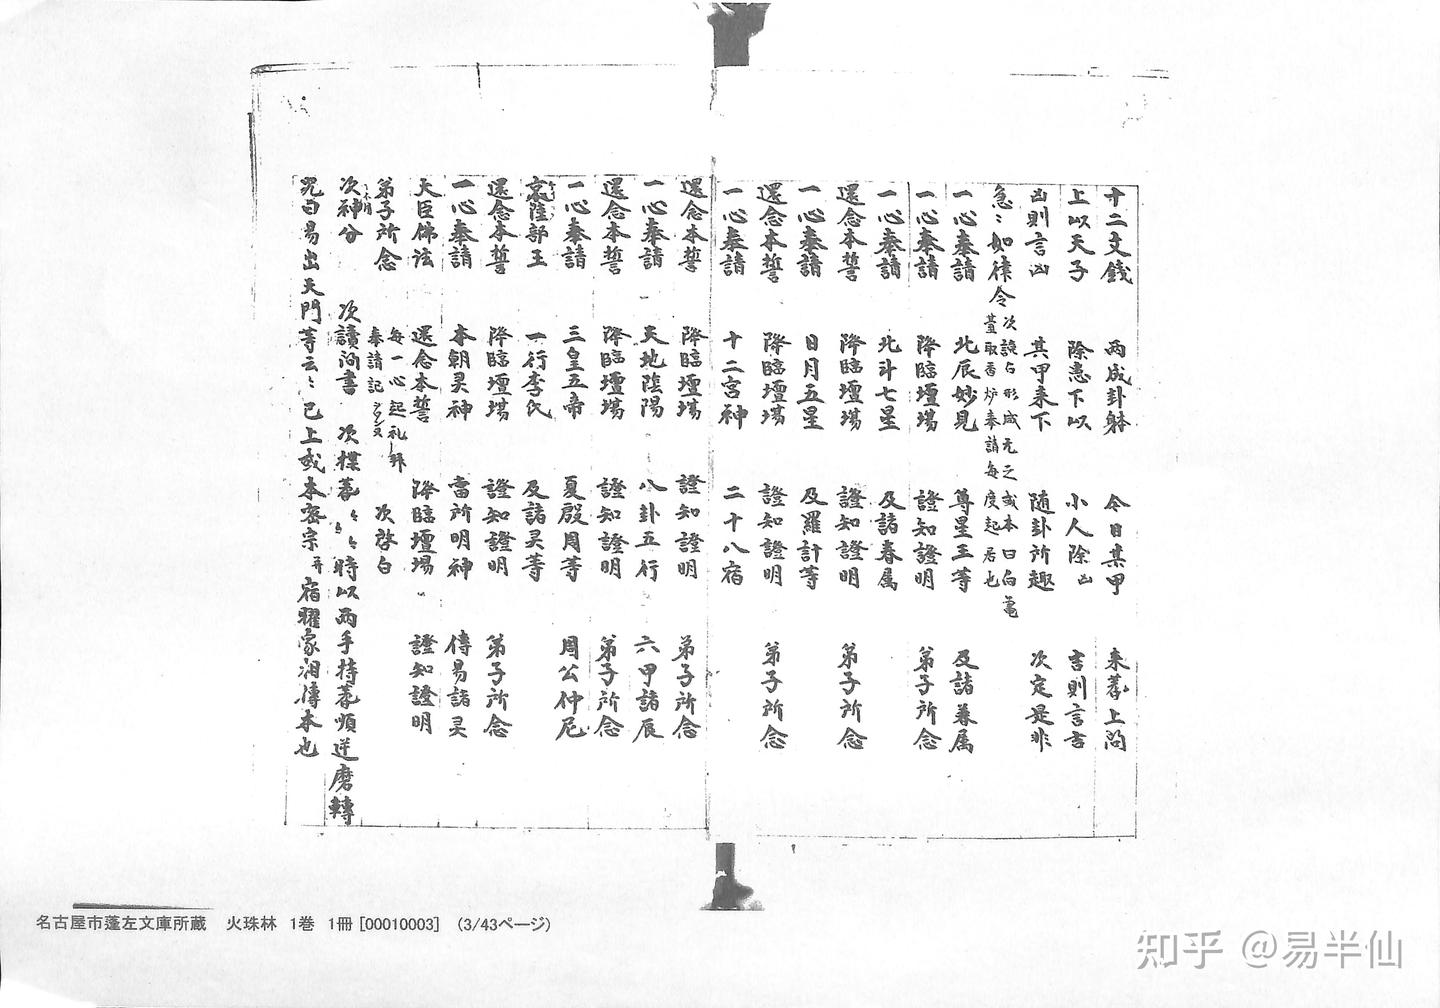 十二文錢 両成卦躰 今日某甲 来蓍上問
上以天子 除恵下以 小人除凶 吉則言吉
凶則言凶 其甲来下 随卦所趣 次定是非
急〻如律令
一心奉請 北辰妙見 尊星王等 及諸眷属
一心奉請 降臨壇場 證知證明 弟子所念
一心奉請 北斗七星 及諸眷属
還念本誓 降臨壇場 證知證明 弟子所念
一心奉請 日月五星 及羅計等
還念本誓 降臨壇場 證知證明 弟子所念
一心奉請 十二宮神 二十八宿
還念本誓 降臨壇場 證知證明 弟子所念
一心奉請 天地陰陽 八卦五行 六甲諸辰
還念本誓 降臨壇場 證知證明 弟子所念
一心奉請 三皇五帝 夏殷周等 周公仲尼
京陸郭王 一行李氏 及諸灵等
還念本誓 降臨壇場 證知證明 弟子所念
一心奉請 本朝灵神 當所明神 傳易諸灵
大臣佛法 還念本誓 降臨壇場 證知證明
弟子所念 毎一心起礼一拜 奉請記 次啓白
次神分 次讀泃書 次揲蓍〻〻時以両手持蓍順逆磨轉
咒曰易出天門等云〻已上或本密宗并宿曜家相傳本也
名古屋市蓬左文庫所蔵 火珠林 1巻 1冊 [00010003] (3/43ページ)
知乎 @易半仙